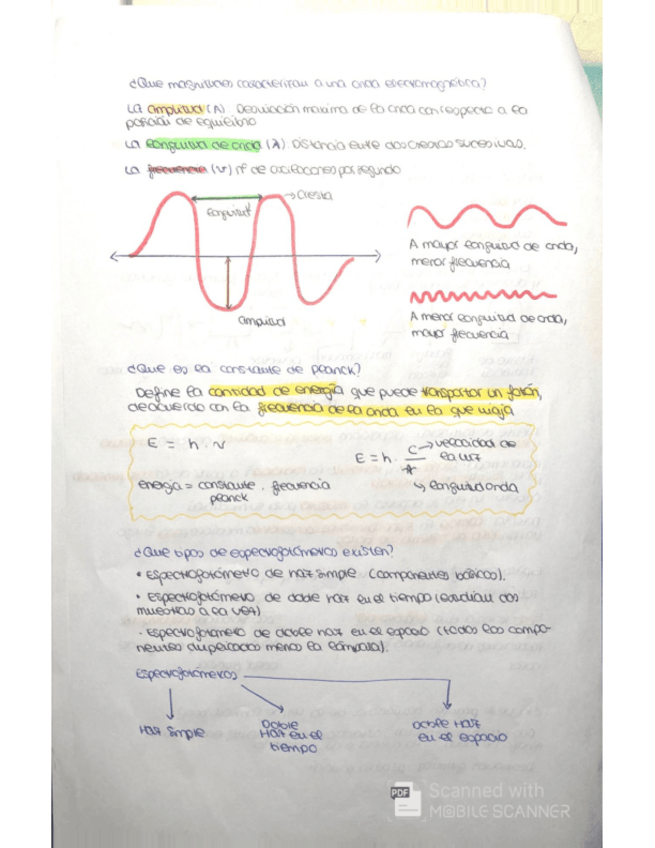 ¿Que magnitudes caracterizan a una onda electromagnética?
La amplitud (A): Desviación maxima de la onda con respecto a la
posición de equilibrio
La longitud de onda (λ): Distancia entre dos crestas sucesivas.
La frecuencia (v) nº de oscilaciones por segundo
→ Cresta
Longitud
Amplitud
A mayor longitud de onda,
menor frecuencia
A menor longitud de onda,
mayor frecuencia
¿Que es la constante de Planck?
Define la cantidad de energía que puede transportar un fotón,
de acuerdo con la frecuencia de la onda en la que viaja
E = h · v
E = h · C → velocidad de
la luz
λ
↳ longitud onda
energía = constante · frecuencia
planck
¿Que tipos de espectrofotómetros existen?
• Espectrofotómetro de haz simple (componentes básicos).
• Espectrofotómetro de doble haz en el tiempo (estudian dos
muestras a la vez)
· Espectrofotómetro de doble haz en el espacio (todos los compo-
nentes duplicados menos la lámpara).
Espectrofotómetros
Haz simple
Doble
Haz en el
tiempo
Doble Haz
en el espacio
PDF Scanned with
MOBILE SCANNER